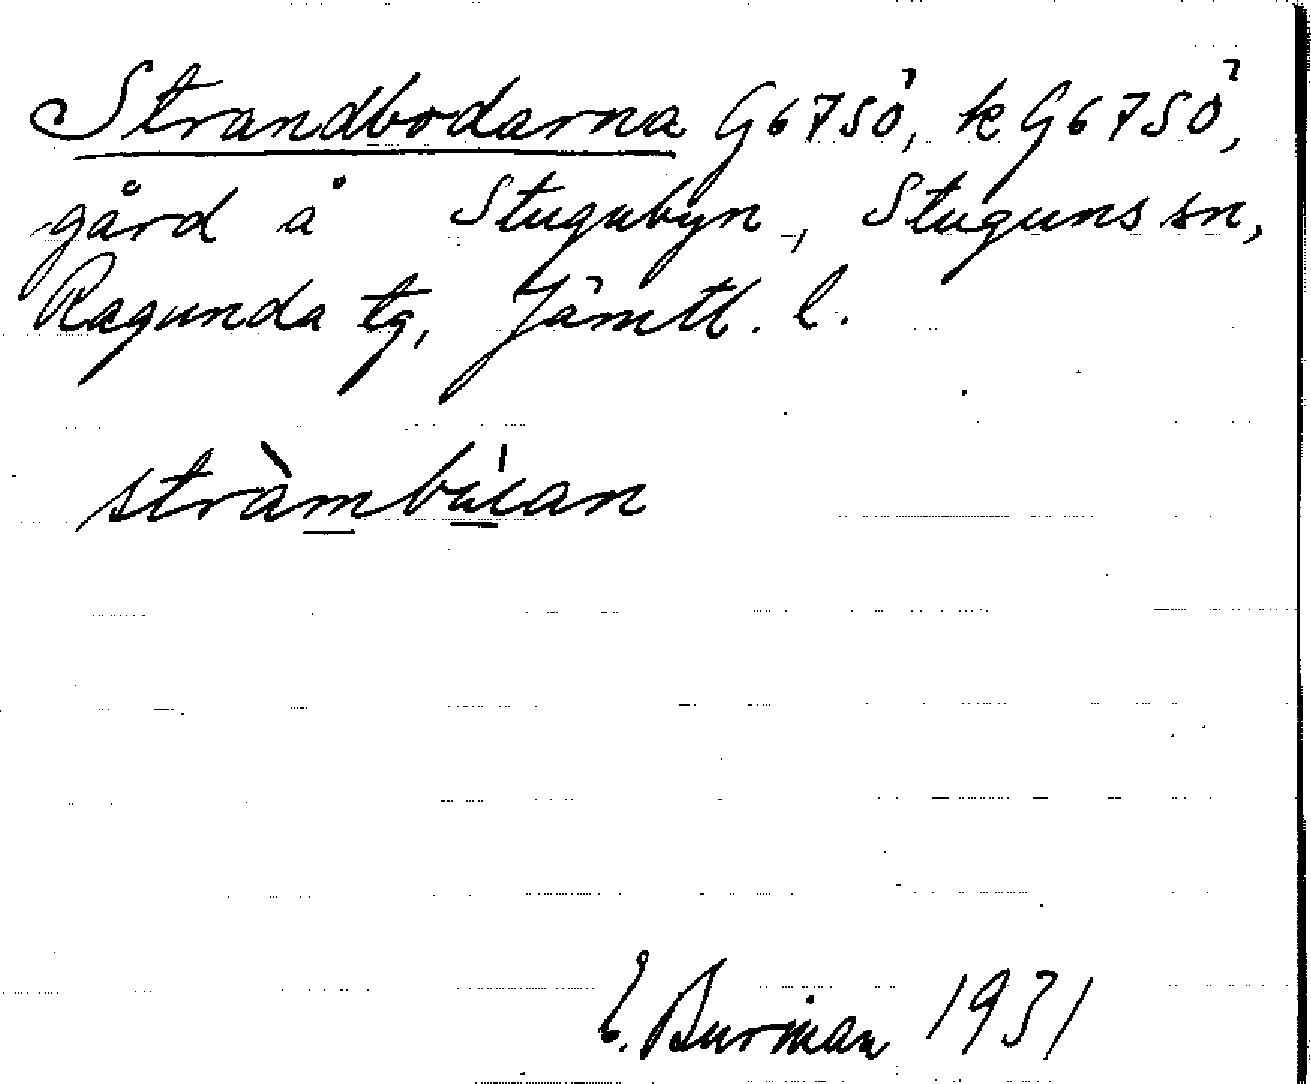 Strandbodarna G67SÖ, k G67SÖ,
gård å Stugubyn, Stuguns sn,
Ragunda tg, Jämtl. l.
stràmbúan
E. Burman 1931